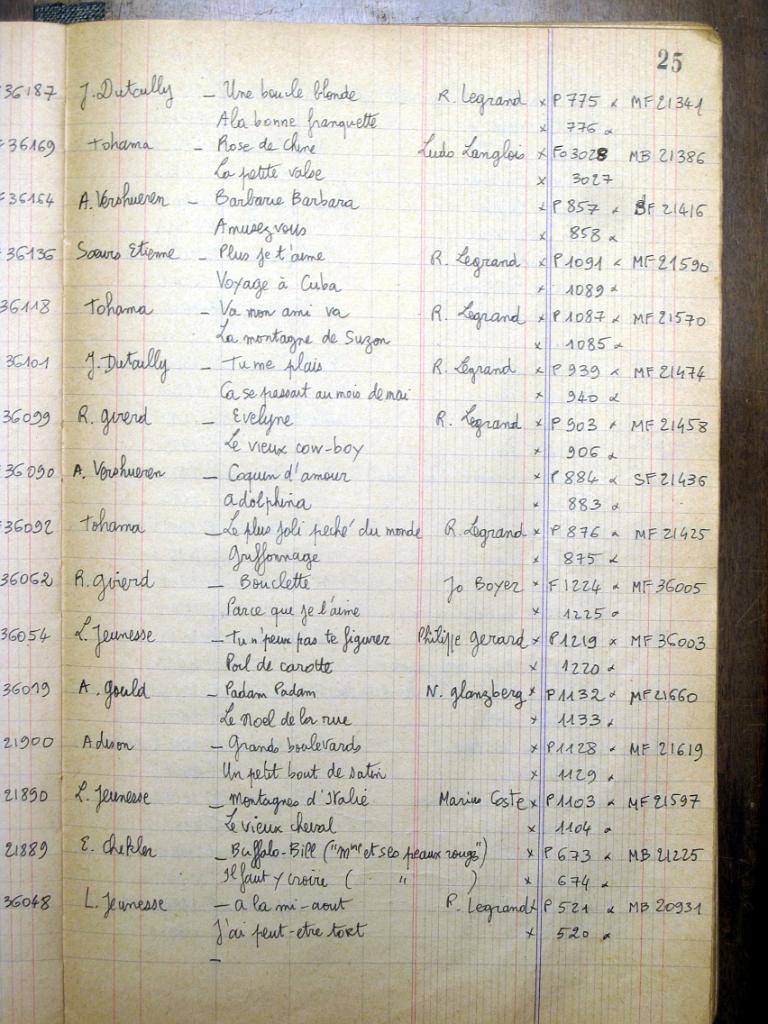 25
36187 J. Dutailly — Une boucle blonde R. Legrand x P 775 x MF 21341
A la bonne franquette 776 x
36169 Tohama — Rose de chine Ludo Langlois x Fo 3028 MB 21386
La petite valse x 3027
36164 A. Vershueren — Barbarie Barbara x P 857 x SF 21416
Amusez vous x 858 x
36136 Sœurs Etienne — Plus je t'aime R. Legrand x P 1091 x MF 21590
Voyage à Cuba x 1089 x
36118 Tohama — Va mon ami va R. Legrand x P 1087 x MF 21570
La montagne de Suzon x 1085 x
36101 J. Dutailly — Tu me plais R. Legrand x P 939 x MF 21474
Ca se passait au mois de mai x 940 x
36099 R. girerd — Evelyne R. Legrand x P 903 x MF 21458
Le vieux cow-boy x 906 x
36090 A. Vershueren — Coquin d'amour x P 884 x SF 21436
adolphina x 883 x
36092 Tohama — Le plus joli peché du monde R. Legrand x P 876 x MF 21425
Griffonnage x 875 x
36062 R. girerd — Bouclette Jo Boyer x F 1224 x MF 36005
Parce que je l'aime x 1225 x
36054 L. Jeunesse — Tu n'peux pas te figurer Philippe gerard x P 1219 x MF 36003
Poil de carotte x 1220 x
36019 A. gould — Padam Padam N. glanzberg x P 1132 x MF 21660
Le noel de la rue x 1133 x
21900 Adison — Grands boulevards x P 1128 x MF 21619
Un petit bout de satin x 1129 x
21890 L. Jeunesse — Montagnes d'Italie Marius Coste x P 1103 x MF 21597
Le vieux cheval x 1104 x
21889 E. Chekler — Buffalo-Bill ("Mme et ses peaux rouge") x P 673 x MB 21225
Il faut y croire ( " ) x 674 x
36048 L. Jeunesse — a la mi-aout R. Legrand x P 521 x MB 20931
J'ai peut-etre tort x 520 x
—